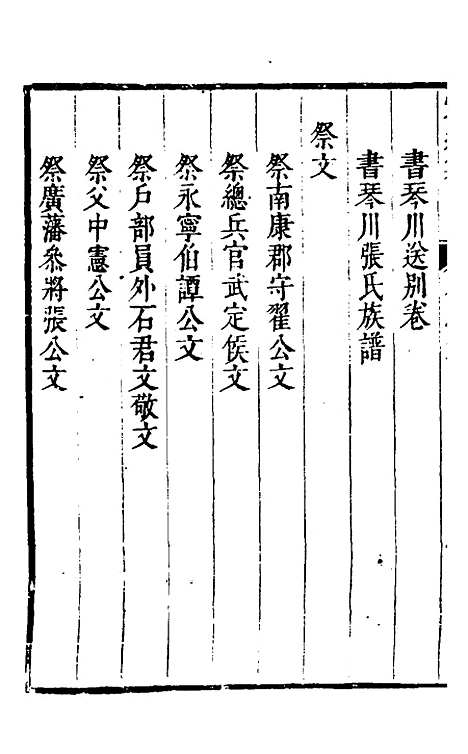 書琴川送别卷
書琴川張氏族譜
祭文
祭南康郡守翟公文
祭總兵官武定侯文
祭永寧伯譚公文
祭户部員外石君文敬文
祭父中憲公文
祭廣藩叅將張公文